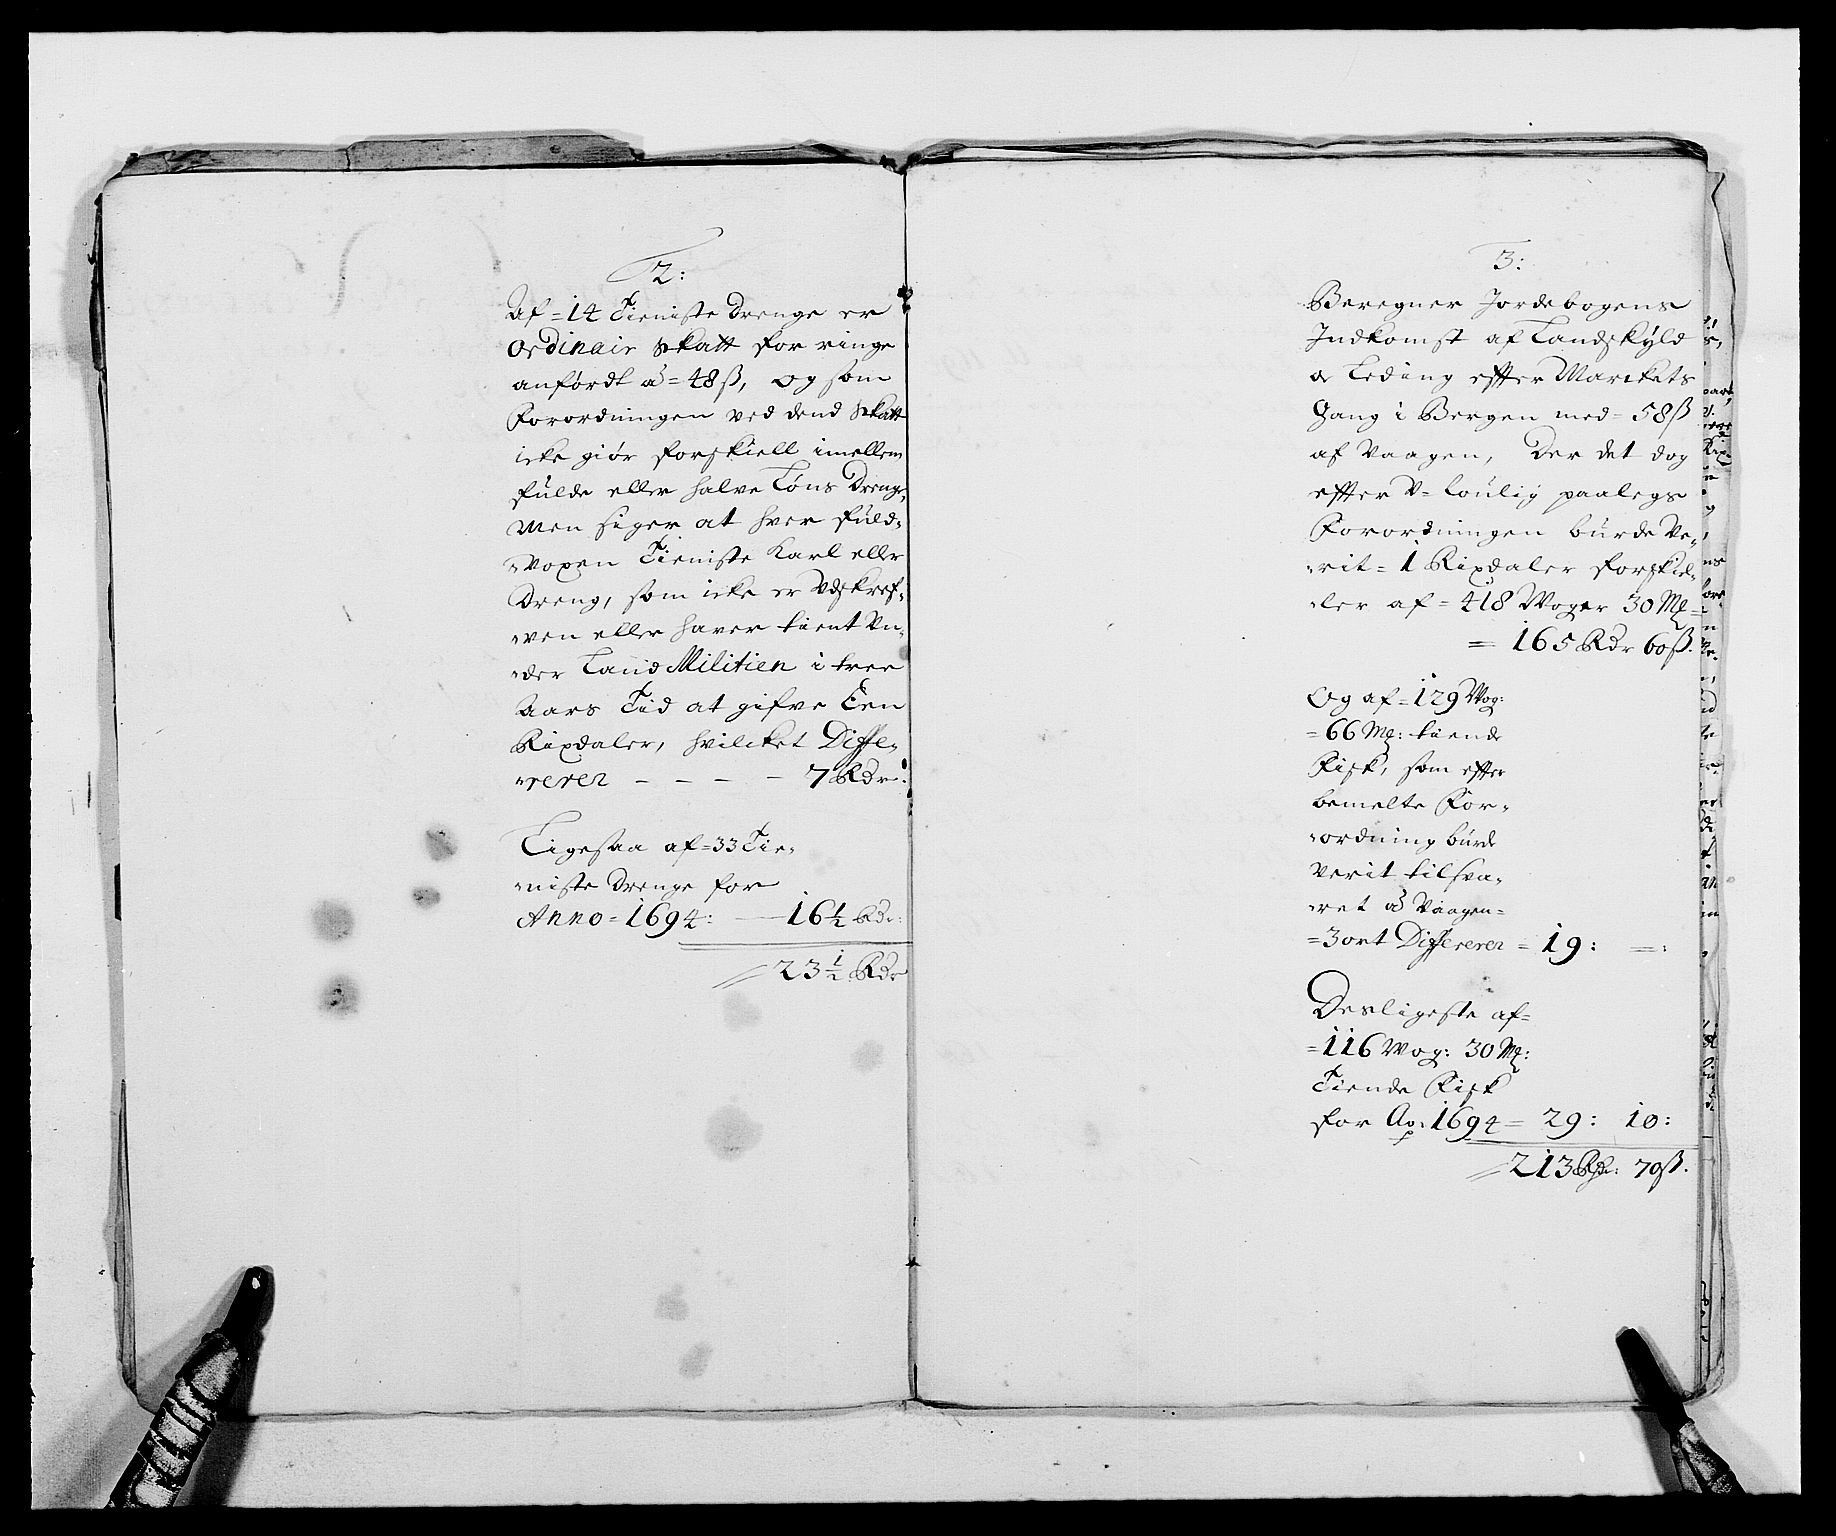 2:
Af = 14 Tieniste Drenge er
Ordinair Skatt for ringe
anfördt â = 48 ß, og som
Forordningen ved dend Skatt
icke giör forskiell imellem
fulde eller halve Löns Drenge,
Men siger at hver fuld-
voxen Tieniste Karl eller
Dreng, som icke er Udskref-
ven eller haver tient Un-
der Land Militien i tree
Aars Tid at gifve Een
Rixdaler, hvilcket Diffe-
rerer - - - - 7 Rdr:
Ligesaa af = 33 Tie-
niste Drenge for
Anno = 1694: — 16½ Rdr:
23½ Rdr
3:
Beregner Jordebogens
Indkomst af Landskyld
oc Leding effter Marckets
Gang i Bergen med = 58 ß
af Vaagen, Der det dog
effter U-loulig paalegs
Forordningen burde Ve-
rit = 1 Rixdaler forskiel-
ler af = 418 Woger 30 Mk =
= 165 Rdr 60 ß.
Og af = 129 Wog:
= 66 Mk: tiende
Fisk, som effter
bemelte For-
ordning burde
Verit tilsva-
ret â Vaagen =
= 3 ort Differerer = 19: =:
Desligeste af =
= 116 Wog: 30 Mk:
Tiende Fisk
for Ao 1694 = 29: 10:
213 Rdr: 70 ß.